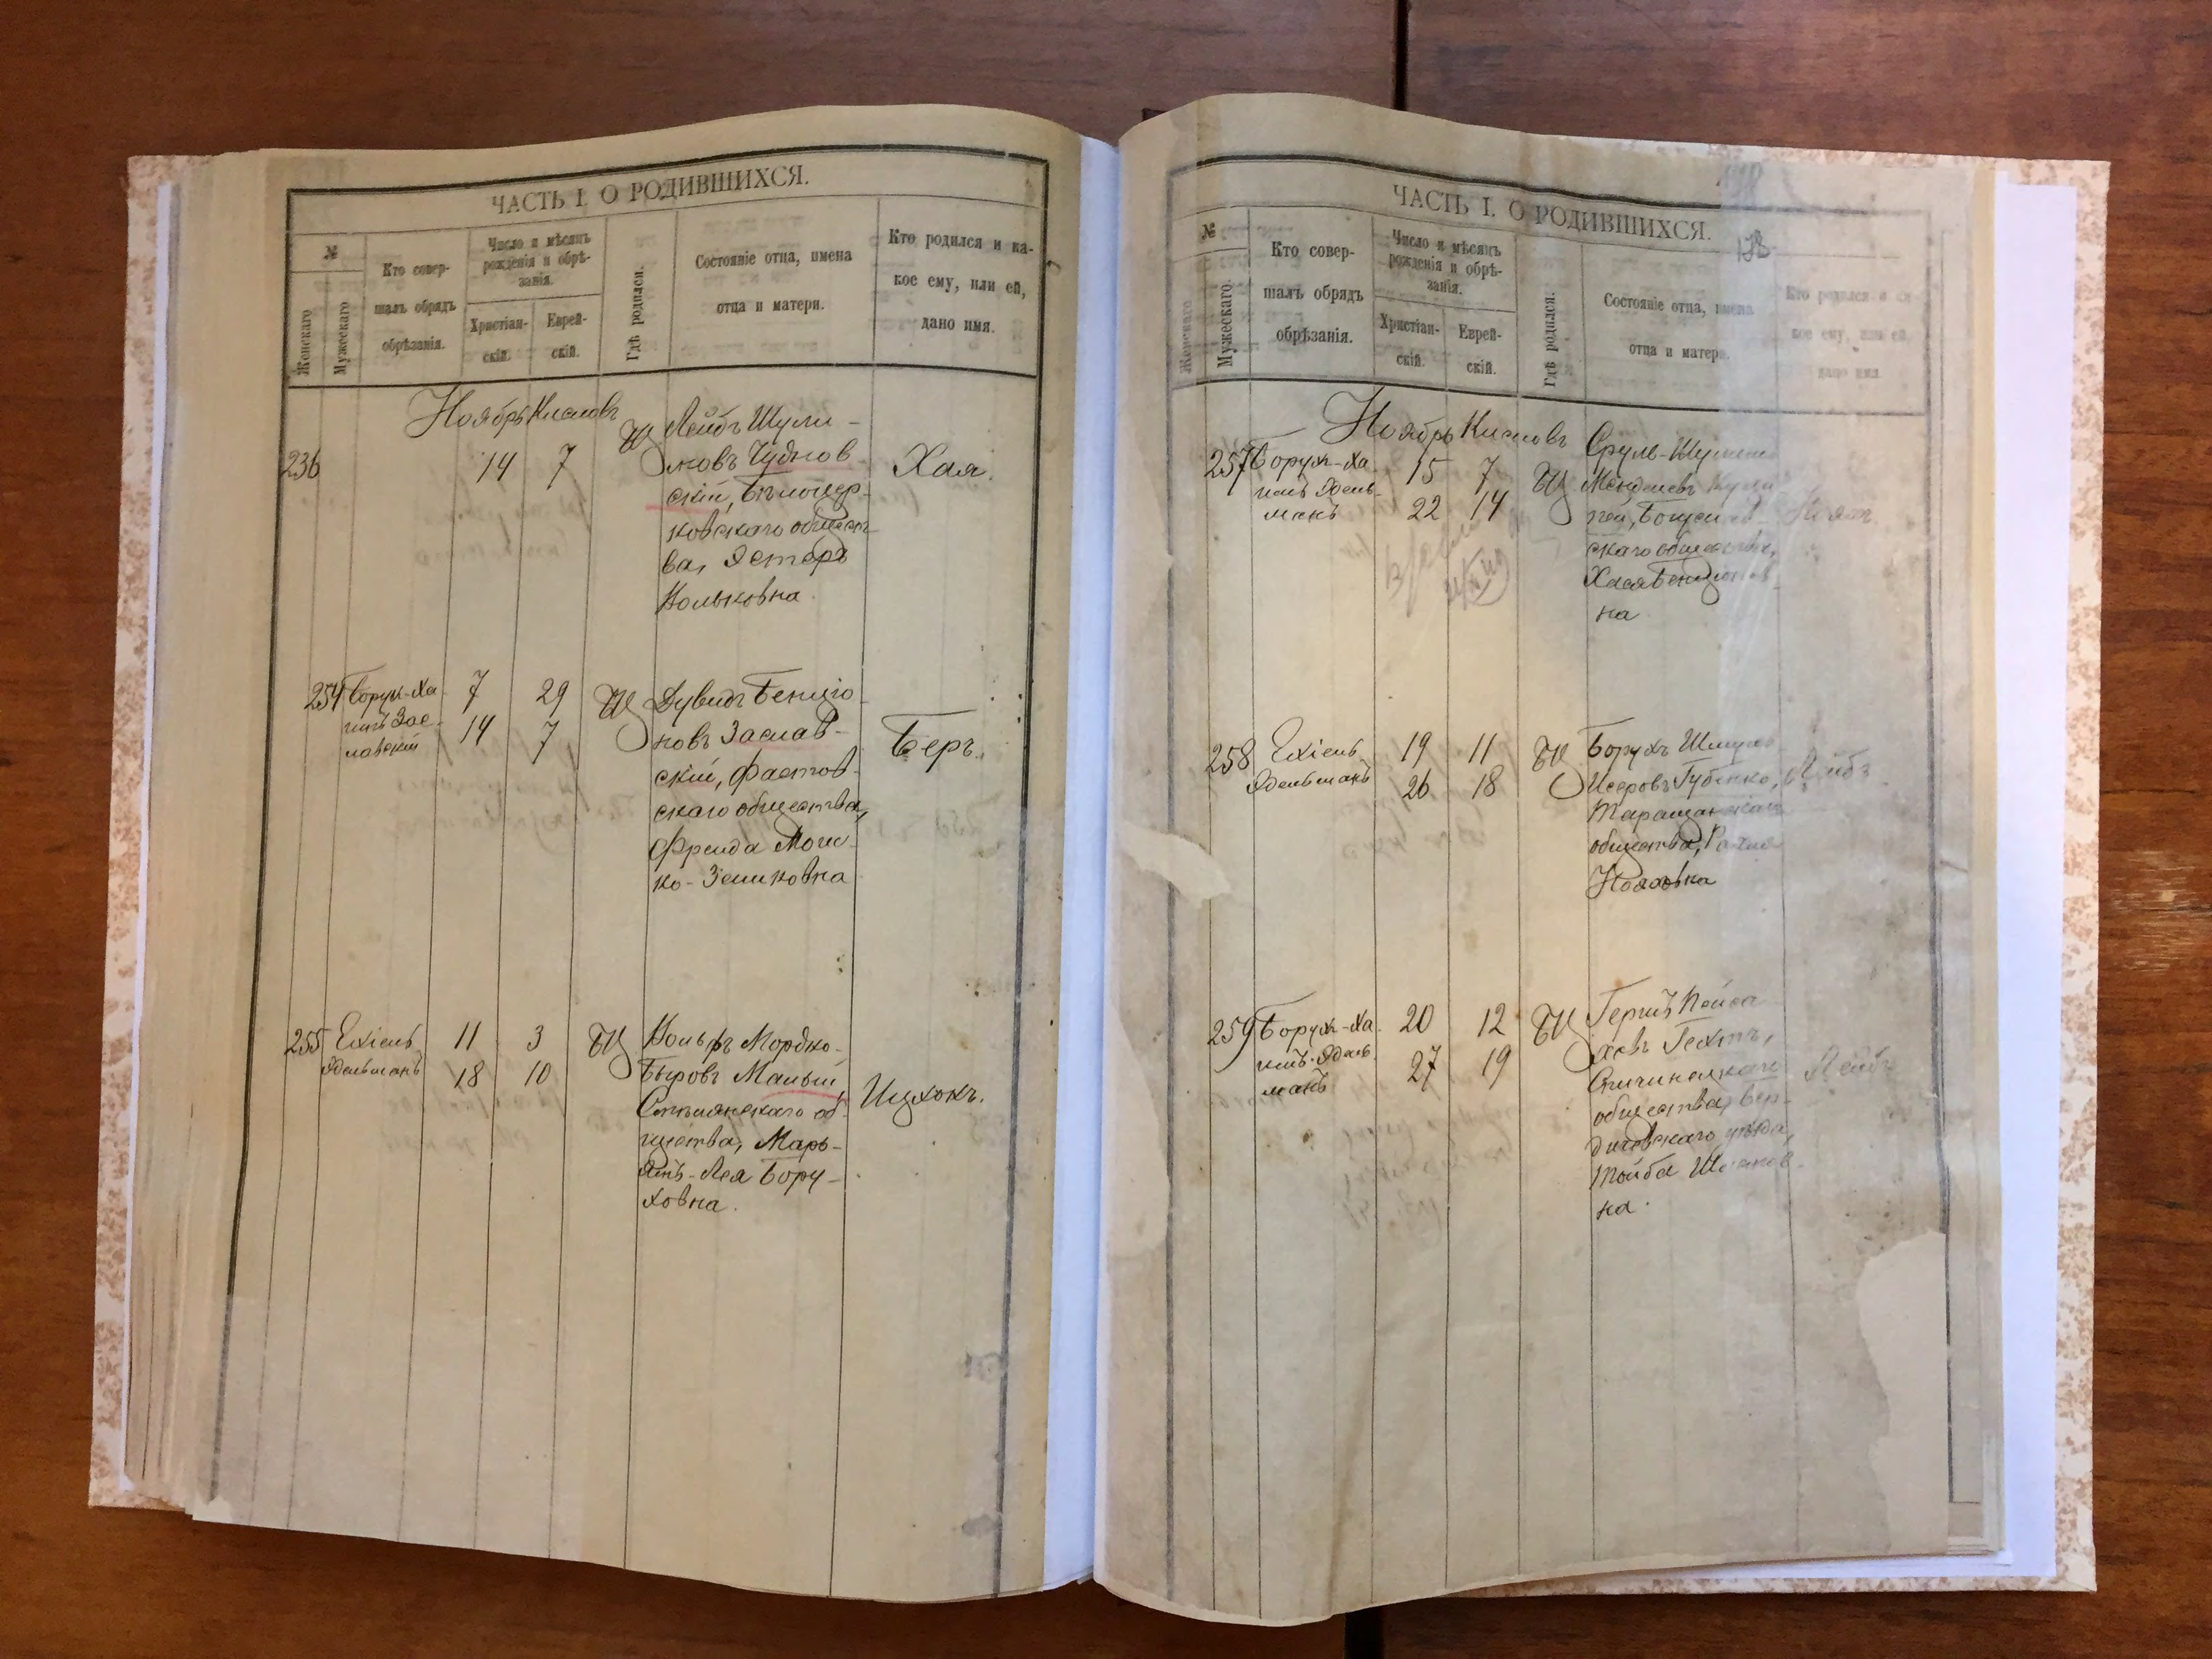 ЧАСТЬ I. О РОДИВШИХСЯ.
№
Женскаго
Мужескаго
Кто совер-
шалъ обрядъ
обрѣзанія.
Число и мѣсяцъ
рожденія и обрѣ-
занія.
Христіан-
скій.
Еврей-
скій.
Гдѣ родился.
Состояніе отца, имена
отца и матери.
Кто родился и ка-
кое ему, или ей,
дано имя.
Ноябрь Кислевъ
236
14 7
БЦ
Лейбъ Шули-
мовъ Чуднов
скій, Бѣлоцер-
ковскаго общест-
ва, Эстеръ
Вольковна.
Хая.
254 Борух-Ха
имъ Зас-
лавскій
7 29
14 7
БЦ
Дувидъ Бенціо
новъ Заслав-
скій, Фастов-
скаго общества,
Фрейда Мош-
ко-Зеликовна
Беръ.
255 Ехіель
Эдельманъ
11 3
18 10
БЦ
Вольфъ Мордко-
Беровъ Малый,
об-
щества, Марь-
ямъ-Лея Бору-
ховна.
Ицхокъ.
ЧАСТЬ I. О РОДИВШИХСЯ.
№
Женскаго
Мужескаго
Кто совер-
шалъ обрядъ
обрѣзанія.
Число и мѣсяцъ
рожденія и обрѣ-
занія.
Христіан-
скій.
Еврей-
скій.
Гдѣ родился.
Состояніе отца, имена
отца и матери.
Кто родился и ка-
кое ему, или ей,
дано имя.
Ноябрь Кислевъ
257 Борух-Ха
имъ Эдель-
манъ
15 7
22 14
БЦ
Сруль-
Менделевъ
скаго общества,
Хася Бенціонов-
на
258 Ехіель
Эдельманъ
19 11
26 18
БЦ
Борухъ
Исеровъ Губенко,
Таращанскаго
общества,
Лейбъ
259 Борух-Ха
имъ Эдель-
манъ
20 12
27 19
БЦ
Гершъ Пейса
ховъ Гехтъ,
Спичинецкаго
общества, Бер-
дичевскаго уѣзда,
Тойба
на.
Лейбъ